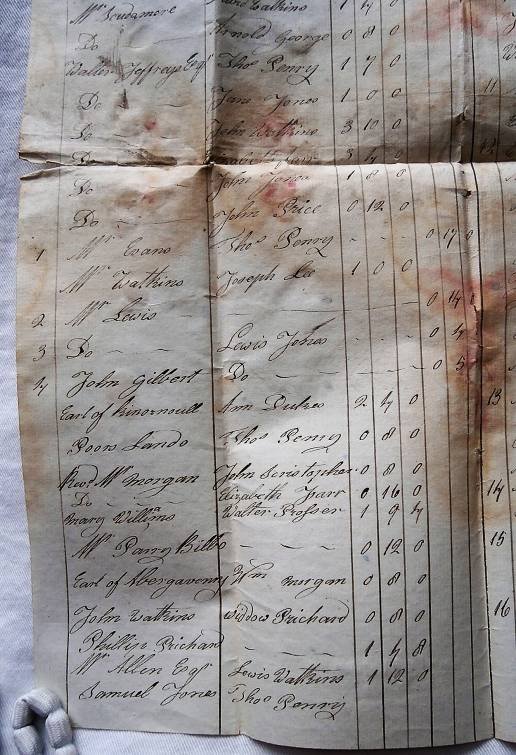 Mr Scudamore Watkins 1 4 0
Do Arnold George 0 8 0
Walter Jeffreys Esqr Thos Penry 1 7 0
Do Jane Jones 1 0 0 11
Do John Watkins 3 10 0
Do 3 4 0
Do John Jones 1 8 0
Do John Price 0 12 0
1 Mr Evans Thos Penry 0 17 0
Mr Watkins Joseph Lee 1 0 0
2 Mr Lewis 0 14 0
3 Do Lewis Jones 0 4
4 John Gilbert Do 0 5
Earl of Kinnoull Ann Dukes 2 4 0 13
Poors Lands Thos Penry 0 8 0
Revd Mr Morgan John Scristopher 0 8 0
Do Elizabeth Farr 0 16 0 14
Mary Williams Walter Prosser 1 9 4
Mr Parry Bilbo 0 12 0 15
Earl of Abergavenny Wm Morgan 0 8 0
John Watkins Widdow Prichard 0 8 0 16
Phillip Prichard 1 4 8
Mr Allen Esqr Lewis Watkins 1 12 0
Samuel Jones Thos Penry